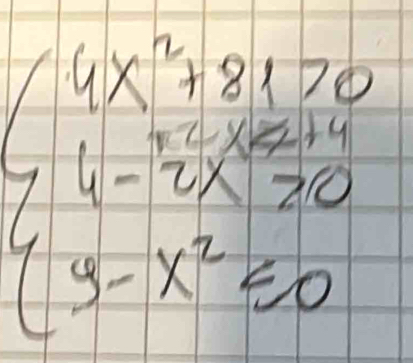 4x² + 81 > 0
4 - 2x ≥ 0
9 - x² ≤ 0